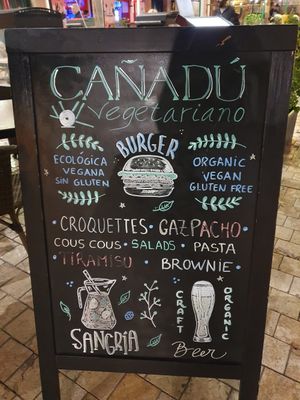 CAÑADÚ
Vegetariano
BURGER
ECOLÓGICA
VEGANA
SIN GLUTEN
ORGANIC
VEGAN
GLUTEN FREE
CROQUETTES · GAZPACHO
COUS COUS · SALADS · PASTA
TIRAMISU · BROWNIE
SANGRIA
CRAFT
ORGANIC
Beer